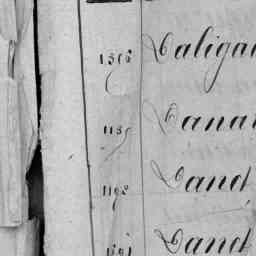 1356 Daligan
1135 Danan
1192 Dand
1191 Dand